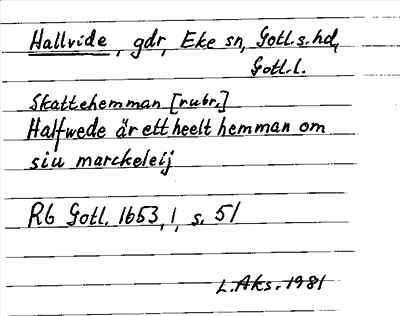 Hallvide, gdr, Eke sn, Gotl.s.hd,
Gotl.l.
Skattehemman [rubr.]
Halfwede är ett heelt hemman om
siu marckeleij
Rb Gotl. 1653, 1, s. 51
L.Aks. 1981